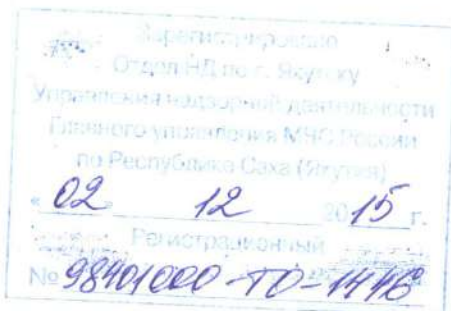 Зарегистрировано
Отдел НД по г. Якутску
Управления надзорной деятельности
Главного управления МЧС России
по Республике Саха (Якутия)
« 02 12 2015 г.
Регистрационный
№ 98401000-ТО-